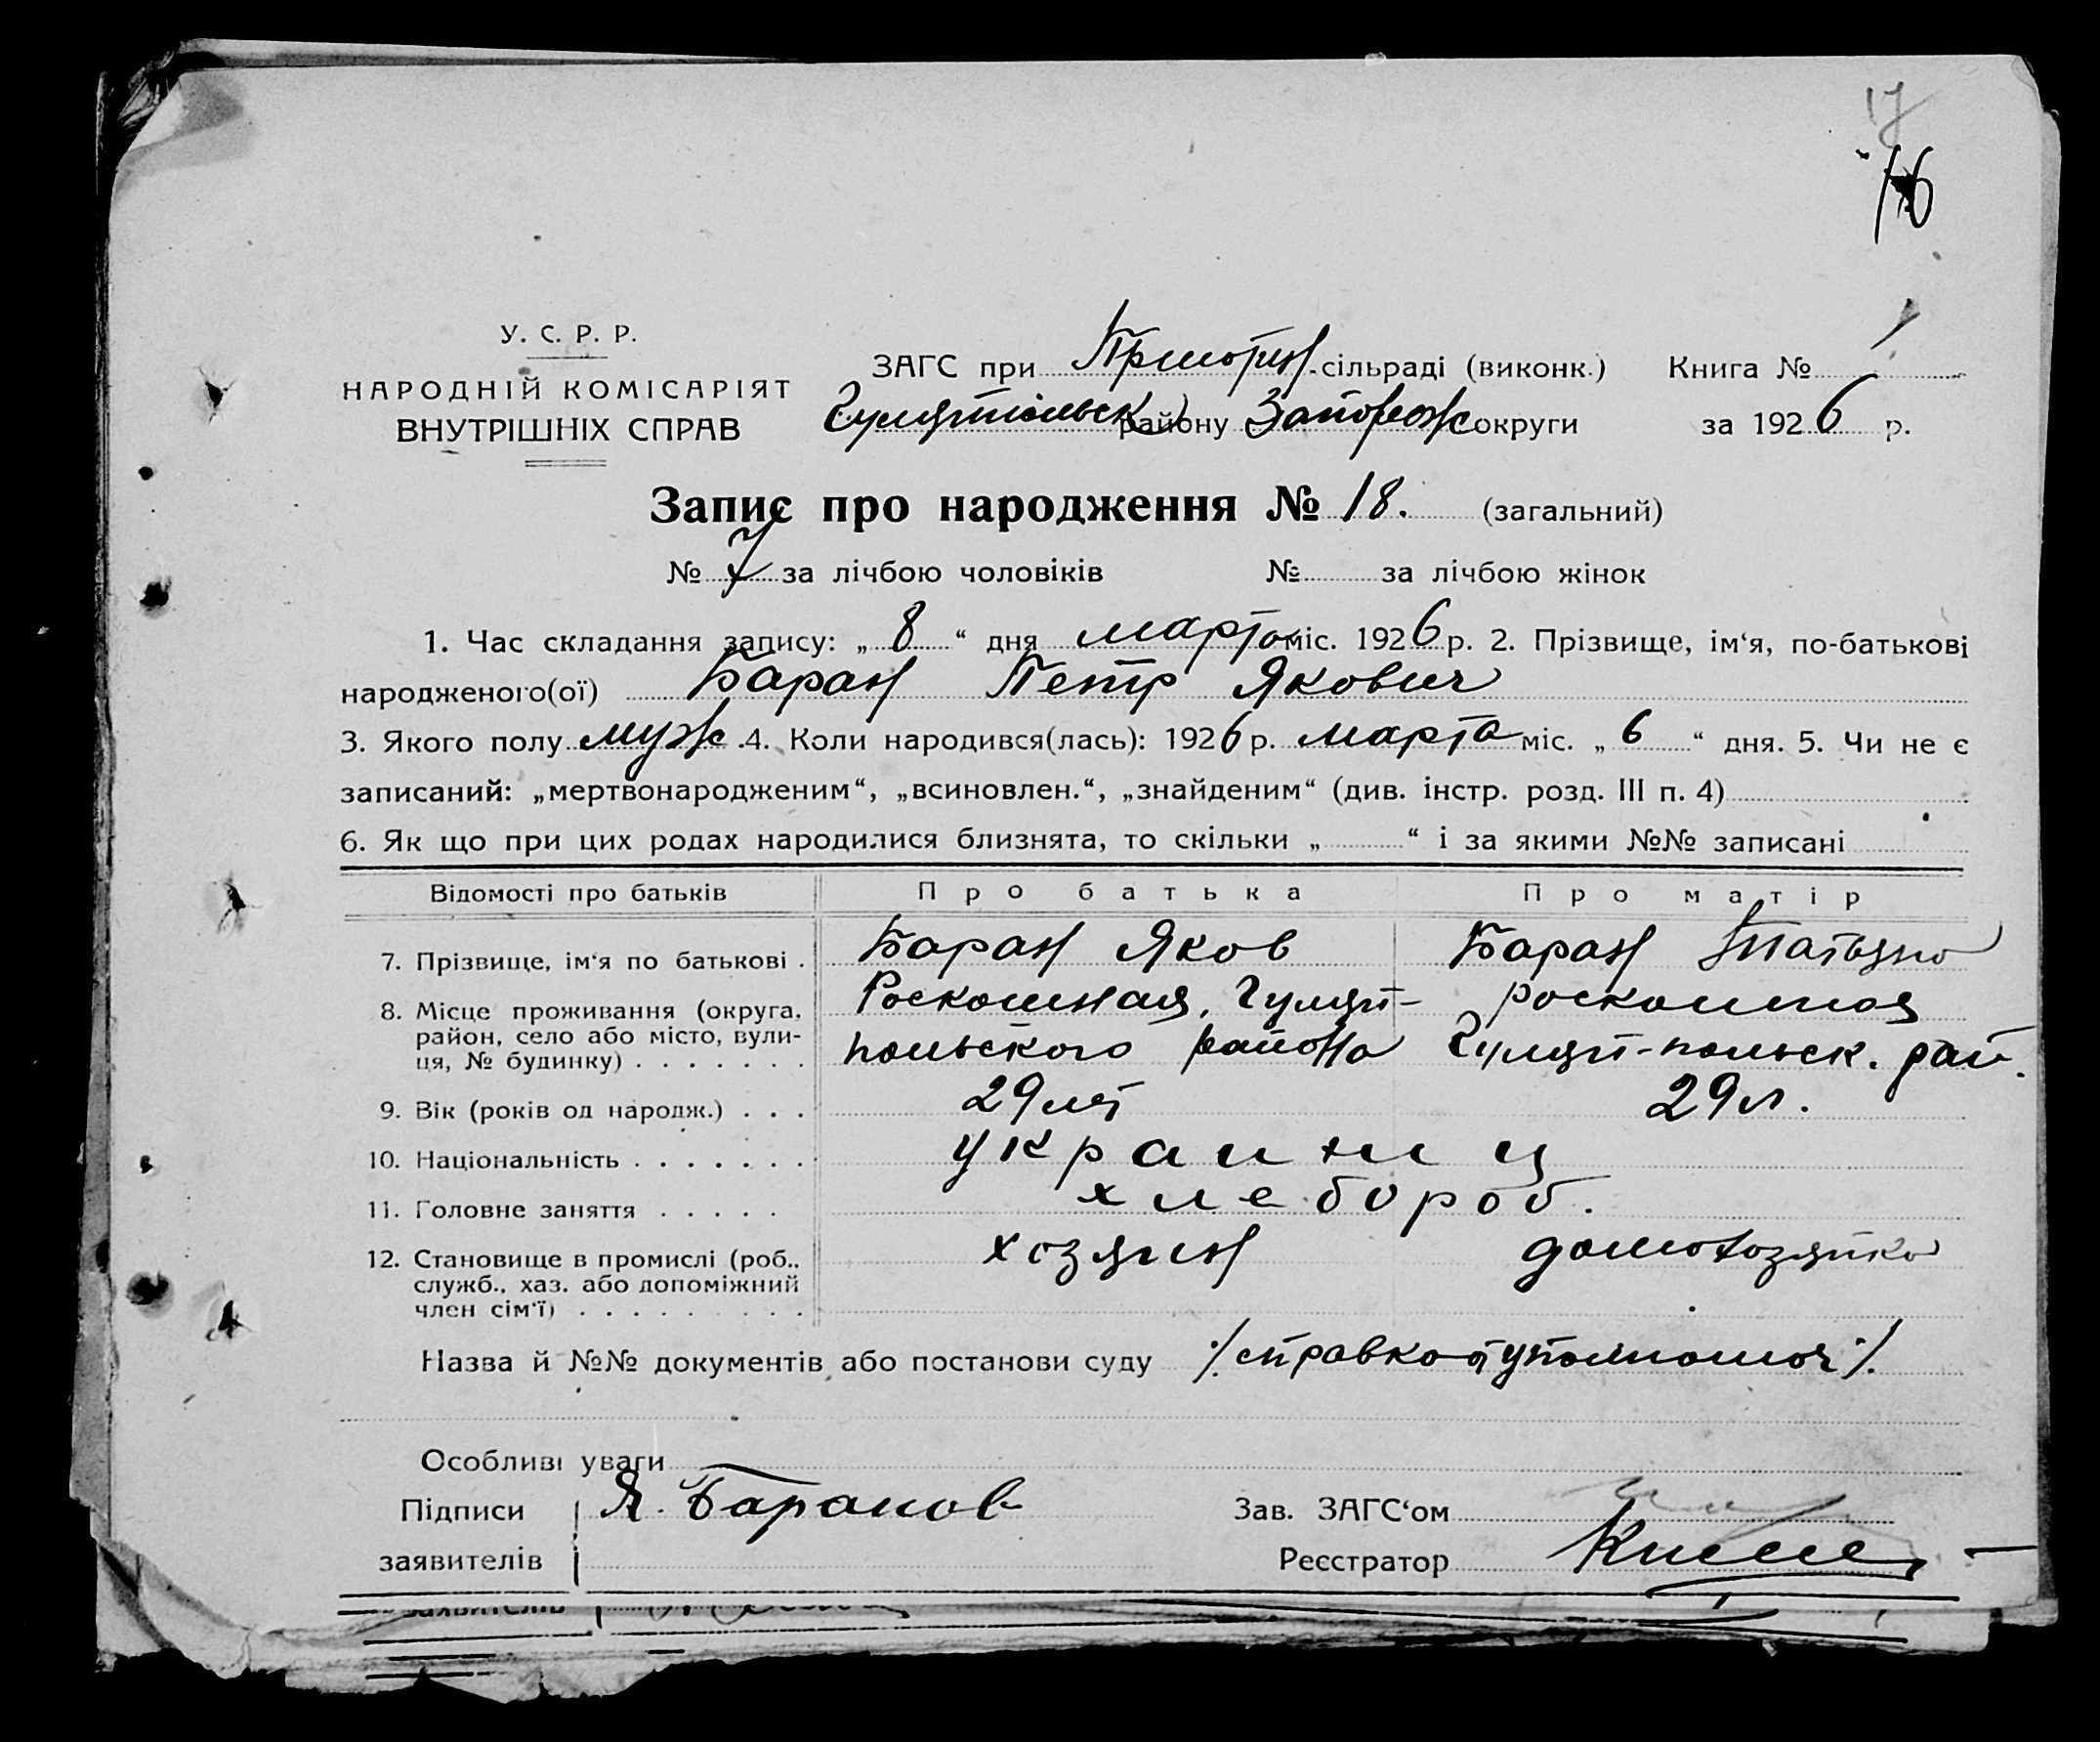 17
16
У. С. Р. Р.
НАРОДНІЙ КОМІСАРІЯТ
ВНУТРІШНІХ СПРАВ
ЗАГС при сільраді (виконк.) Книга № 1
Гуляйпольск району Запорож округи за 1926 р.
Запис про народження № 18. (загальний)
№ 7 за лічбою чоловіків № за лічбою жінок
1. Час складання запису: „ 8 “ дня марта міс. 1926 р. 2. Прізвище, ім‘я, по-батькові
народженого(ої) Баран Петр Якович
3. Якого полу муж. 4. Коли народився(лась): 1926 р. марта міс. „ 6 “ дня. 5. Чи не є
записаний: „мертвонародженим“, „всиновлен.“, „знайденим“ (див. інстр. розд. III п. 4)
6. Як що при цих родах народилися близнята, то скільки „ “ і за якими №№ записані
Відомості про батьків Про батька Про матір
7. Прізвище, ім‘я по батькові . Баран Яков Баран Татьяна
8. Місце проживання (округа, район, село або місто, вули-ця, № будинку) . . . . . . . Роскошная, Гуляй-
польского района роскошная
Гуляй-польск. рай.
9. Вік (років од народж.) . . . 29 лет 29 л.
10. Національність . . . . . . . украинц
11. Головне заняття . . . . . хлебороб.
12. Становище в промислі (роб., служб., хаз. або допоміжний член сім‘ї) . . . . . . . . . хозяин домохозяйка
Назва й №№ документів або постанови суду ./. справка от уполномоч ./.
Особливі уваги
Підписи Я. Баранов Зав. ЗАГС‘ом
заявителів Реєстратор
заявителів